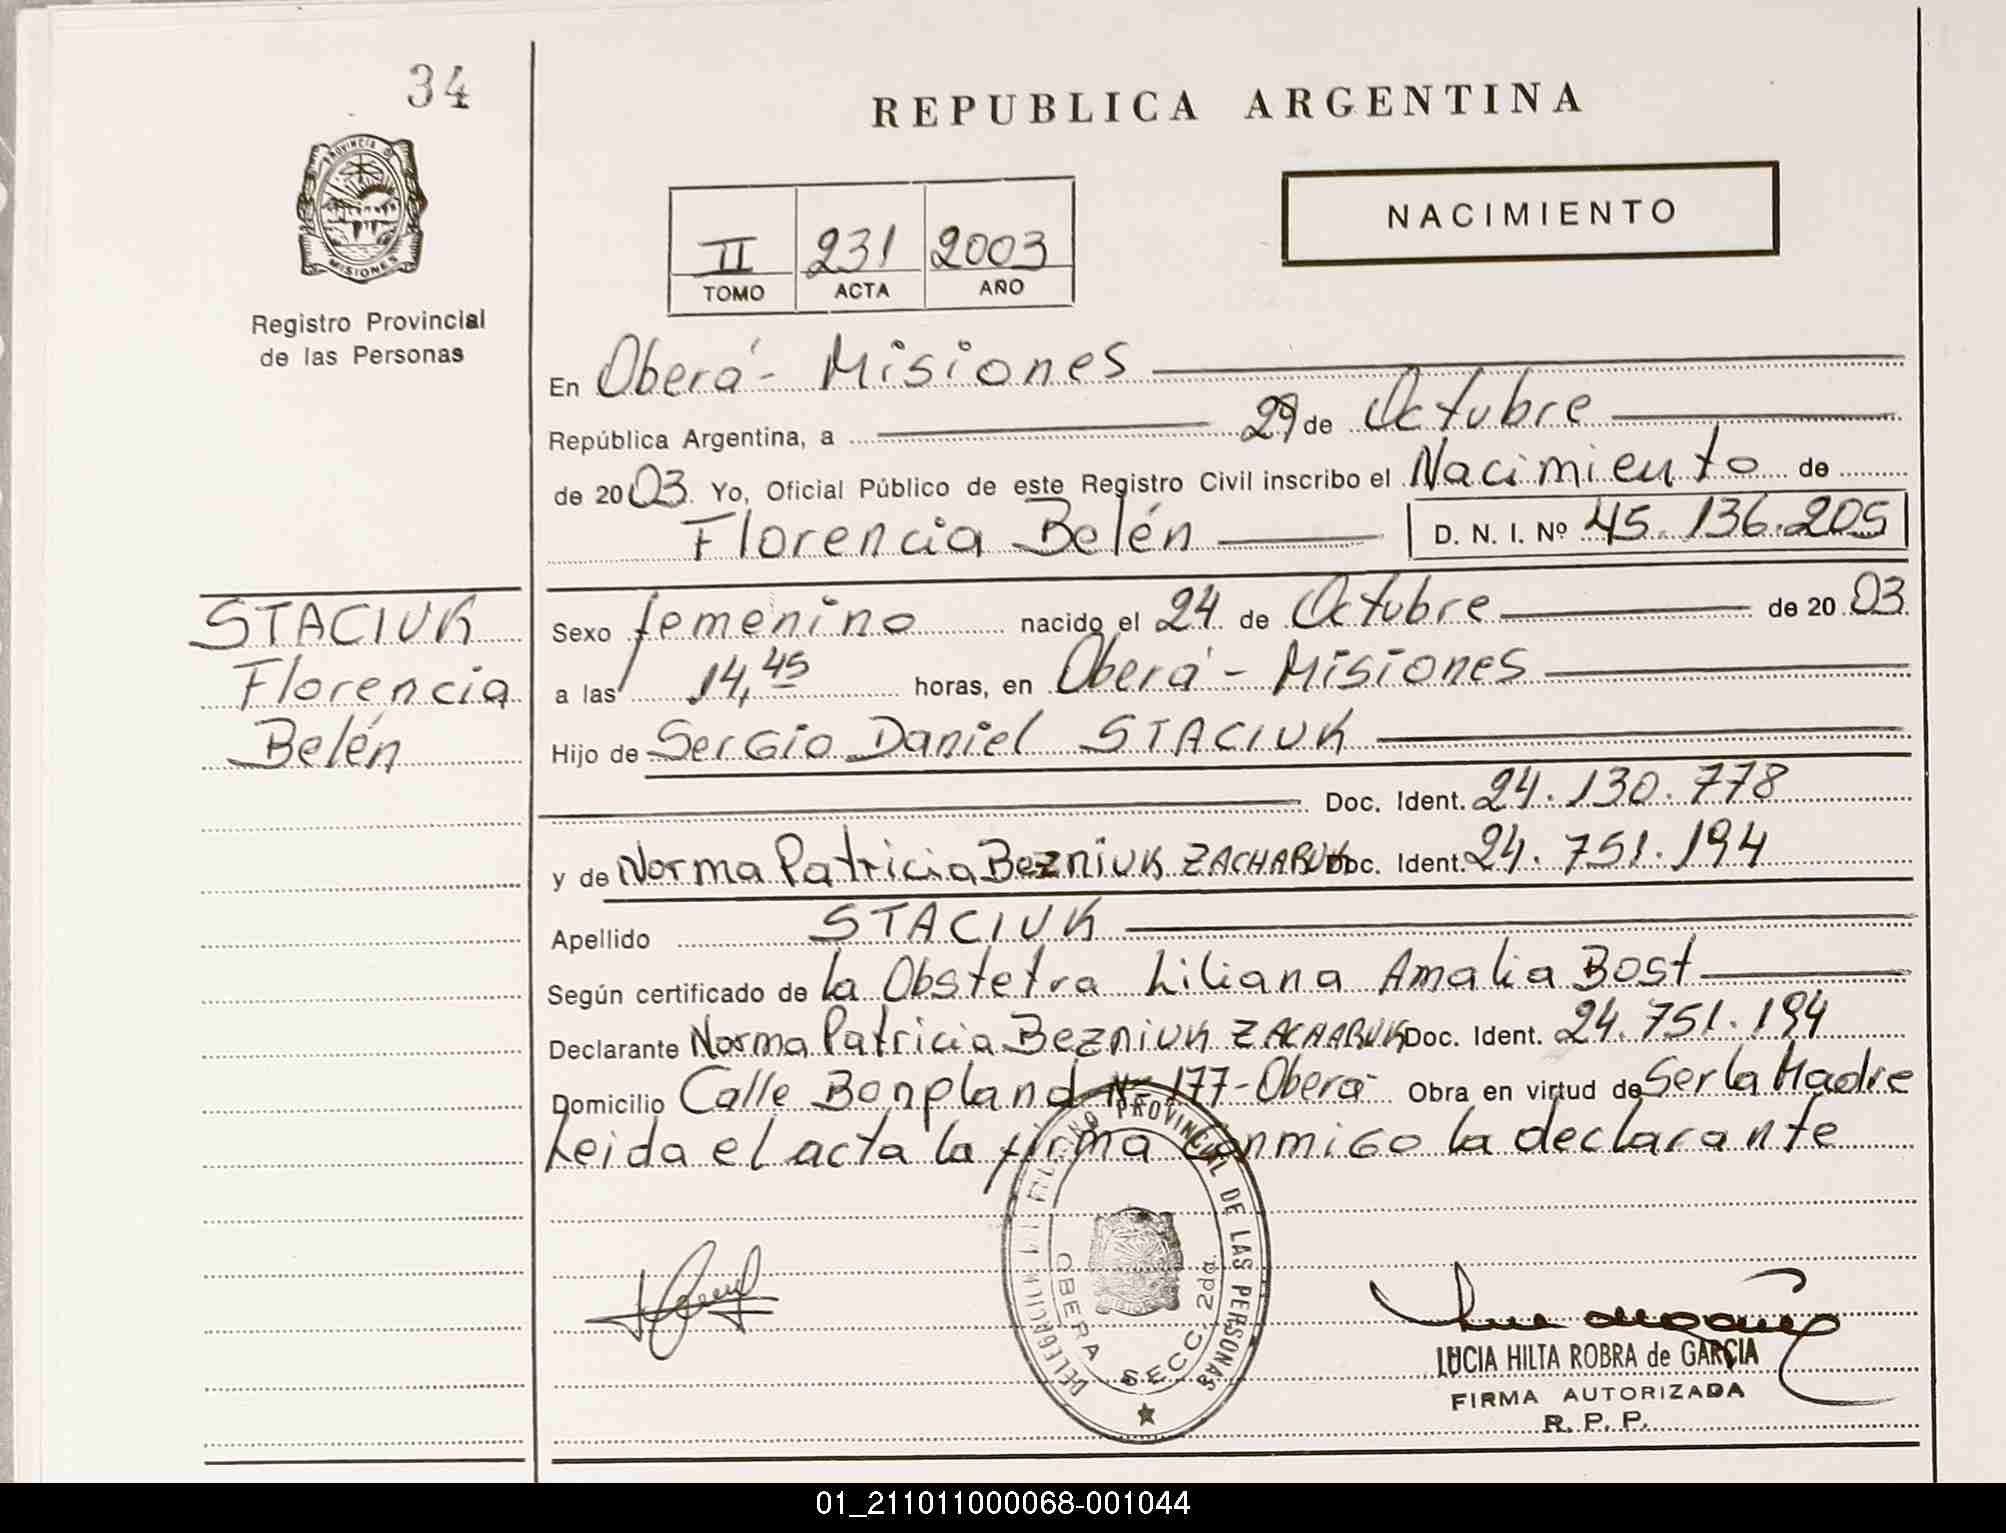 34
REPUBLICA ARGENTINA
PROVINCIA DE
MISIONES
Registro Provincial
de las Personas
II 231 2003
TOMO ACTA AÑO
NACIMIENTO
En Oberá - Misiones
República Argentina, a 29 de Octubre
de 2003. Yo, Oficial Público de este Registro Civil inscribo el Nacimiento de
Florencia Belén D. N. I. Nº 45.136.205
STACIUK
Florencia
Belén
Sexo femenino nacido el 24 de Octubre de 2003.
a las 14,45 horas, en Oberá - Misiones
Hijo de Sergio Daniel STACIUK
Doc. Ident. 24.130.778
y de Norma Patricia Bezniuk ZACHARUK Doc. Ident. 24.751.194
Apellido STACIUK
Según certificado de la Obstetra Liliana Amalia Bost
Declarante Norma Patricia Bezniuk ZACHARUK Doc. Ident. 24.751.194
Domicilio Calle Bonpland Nº 177-Oberá- Obra en virtud de Ser la Madre
Leida el acta la firma conmigo la declarante
PROVINCIAL DE LAS PERSONAS
OBERA SECC. 2da.
LUCIA HILTA ROBRA de GARCIA
FIRMA AUTORIZADA
R. P. P.
01_211011000068-001044